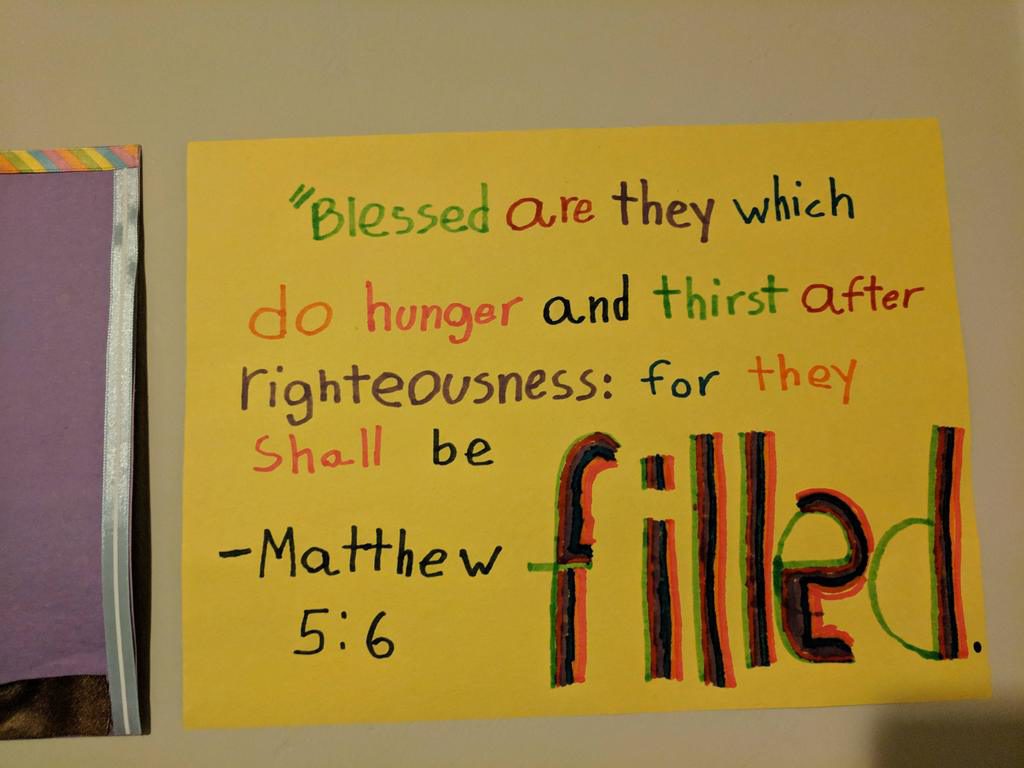 "Blessed are they which
do hunger and thirst after
righteousness: for they
shall be filled.
-Matthew
5:6